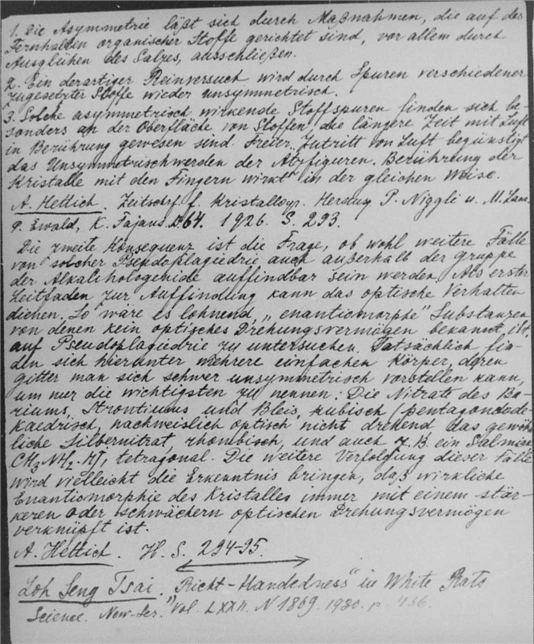 1. Die Asymmetrie läßt sich durch Maßnahmen, die auf das
Fernhalten organischer Stoffe gerichtet sind, vor allem durch
Ausglühen des Salzes, ausschließen.
2. Ein derartiger Reinversuch wird durch Spuren verschiedener
zugesetzter Stoffe wieder unsymmetrisch.
3. Solche asymmetrisch wirkende Stoffspuren finden sich be-
sonders an der Oberfläche von Stoffen, die längere Zeit mit Luft
in Berührung gewesen sind. Freier Zutritt von Luft begünstigt
das Unsymmetrischwerden der Atzfiguren. Berührung der
Kristalle mit den Fingern wirkt in der gleichen Weise.
A. Hettich. Zeitschr. f. Kristallogr. Herausg P. Niggli u. M. Laue
P. Ewald, K. Fajans. B.64. 1926. S. 293.
Die zweite Konsequenz ist die Frage, ob wohl weitere Fälle
von solcher Pseudoplagiedrie auch außerhalb der Gruppe
der Alkalihalogenide auffindbar sein werden. Als erster
Leitfaden zur Auffindung kann das optische Verhalten
dienen. So wäre es lohnend, „enantiomorphe" Substanzen
von denen kein optisches Drehungsvermögen bekannt ist,
auf Pseudoplagiedrie zu untersuchen. Tatsächlich fin-
den sich hierunter mehrere einfachen Körper, deren
Gitter man sich schwer unsymmetrisch vorstellen kann,
um nur die wichtigsten zu nennen: Die Nitrate des Ba-
riums, Strontiums und Bleis, kubisch (pentagondode-
kaedrisch, nachweislich optisch nicht drehend das gewöhn
liche Silbernitrat, rhombisch, und auch z. B. ein Salmiak
CH₃NH₂·HJ, tetragonal. Die weitere Verfolgung dieser Fälle
wird vielleicht die Erkenntnis bringen, daß wirkliche
Enantiomorphie des Kristalles immer mit einem stär-
keren oder schwächern optischen Drehungsvermögen
verknüpft ist.
A. Hettich. H. S. 294-95.
Loh Seng Tsai. „Right-Handedness" in White Rats
Science. New-Ser. Vol. LXXII. N 1869. 1930. p. 436.